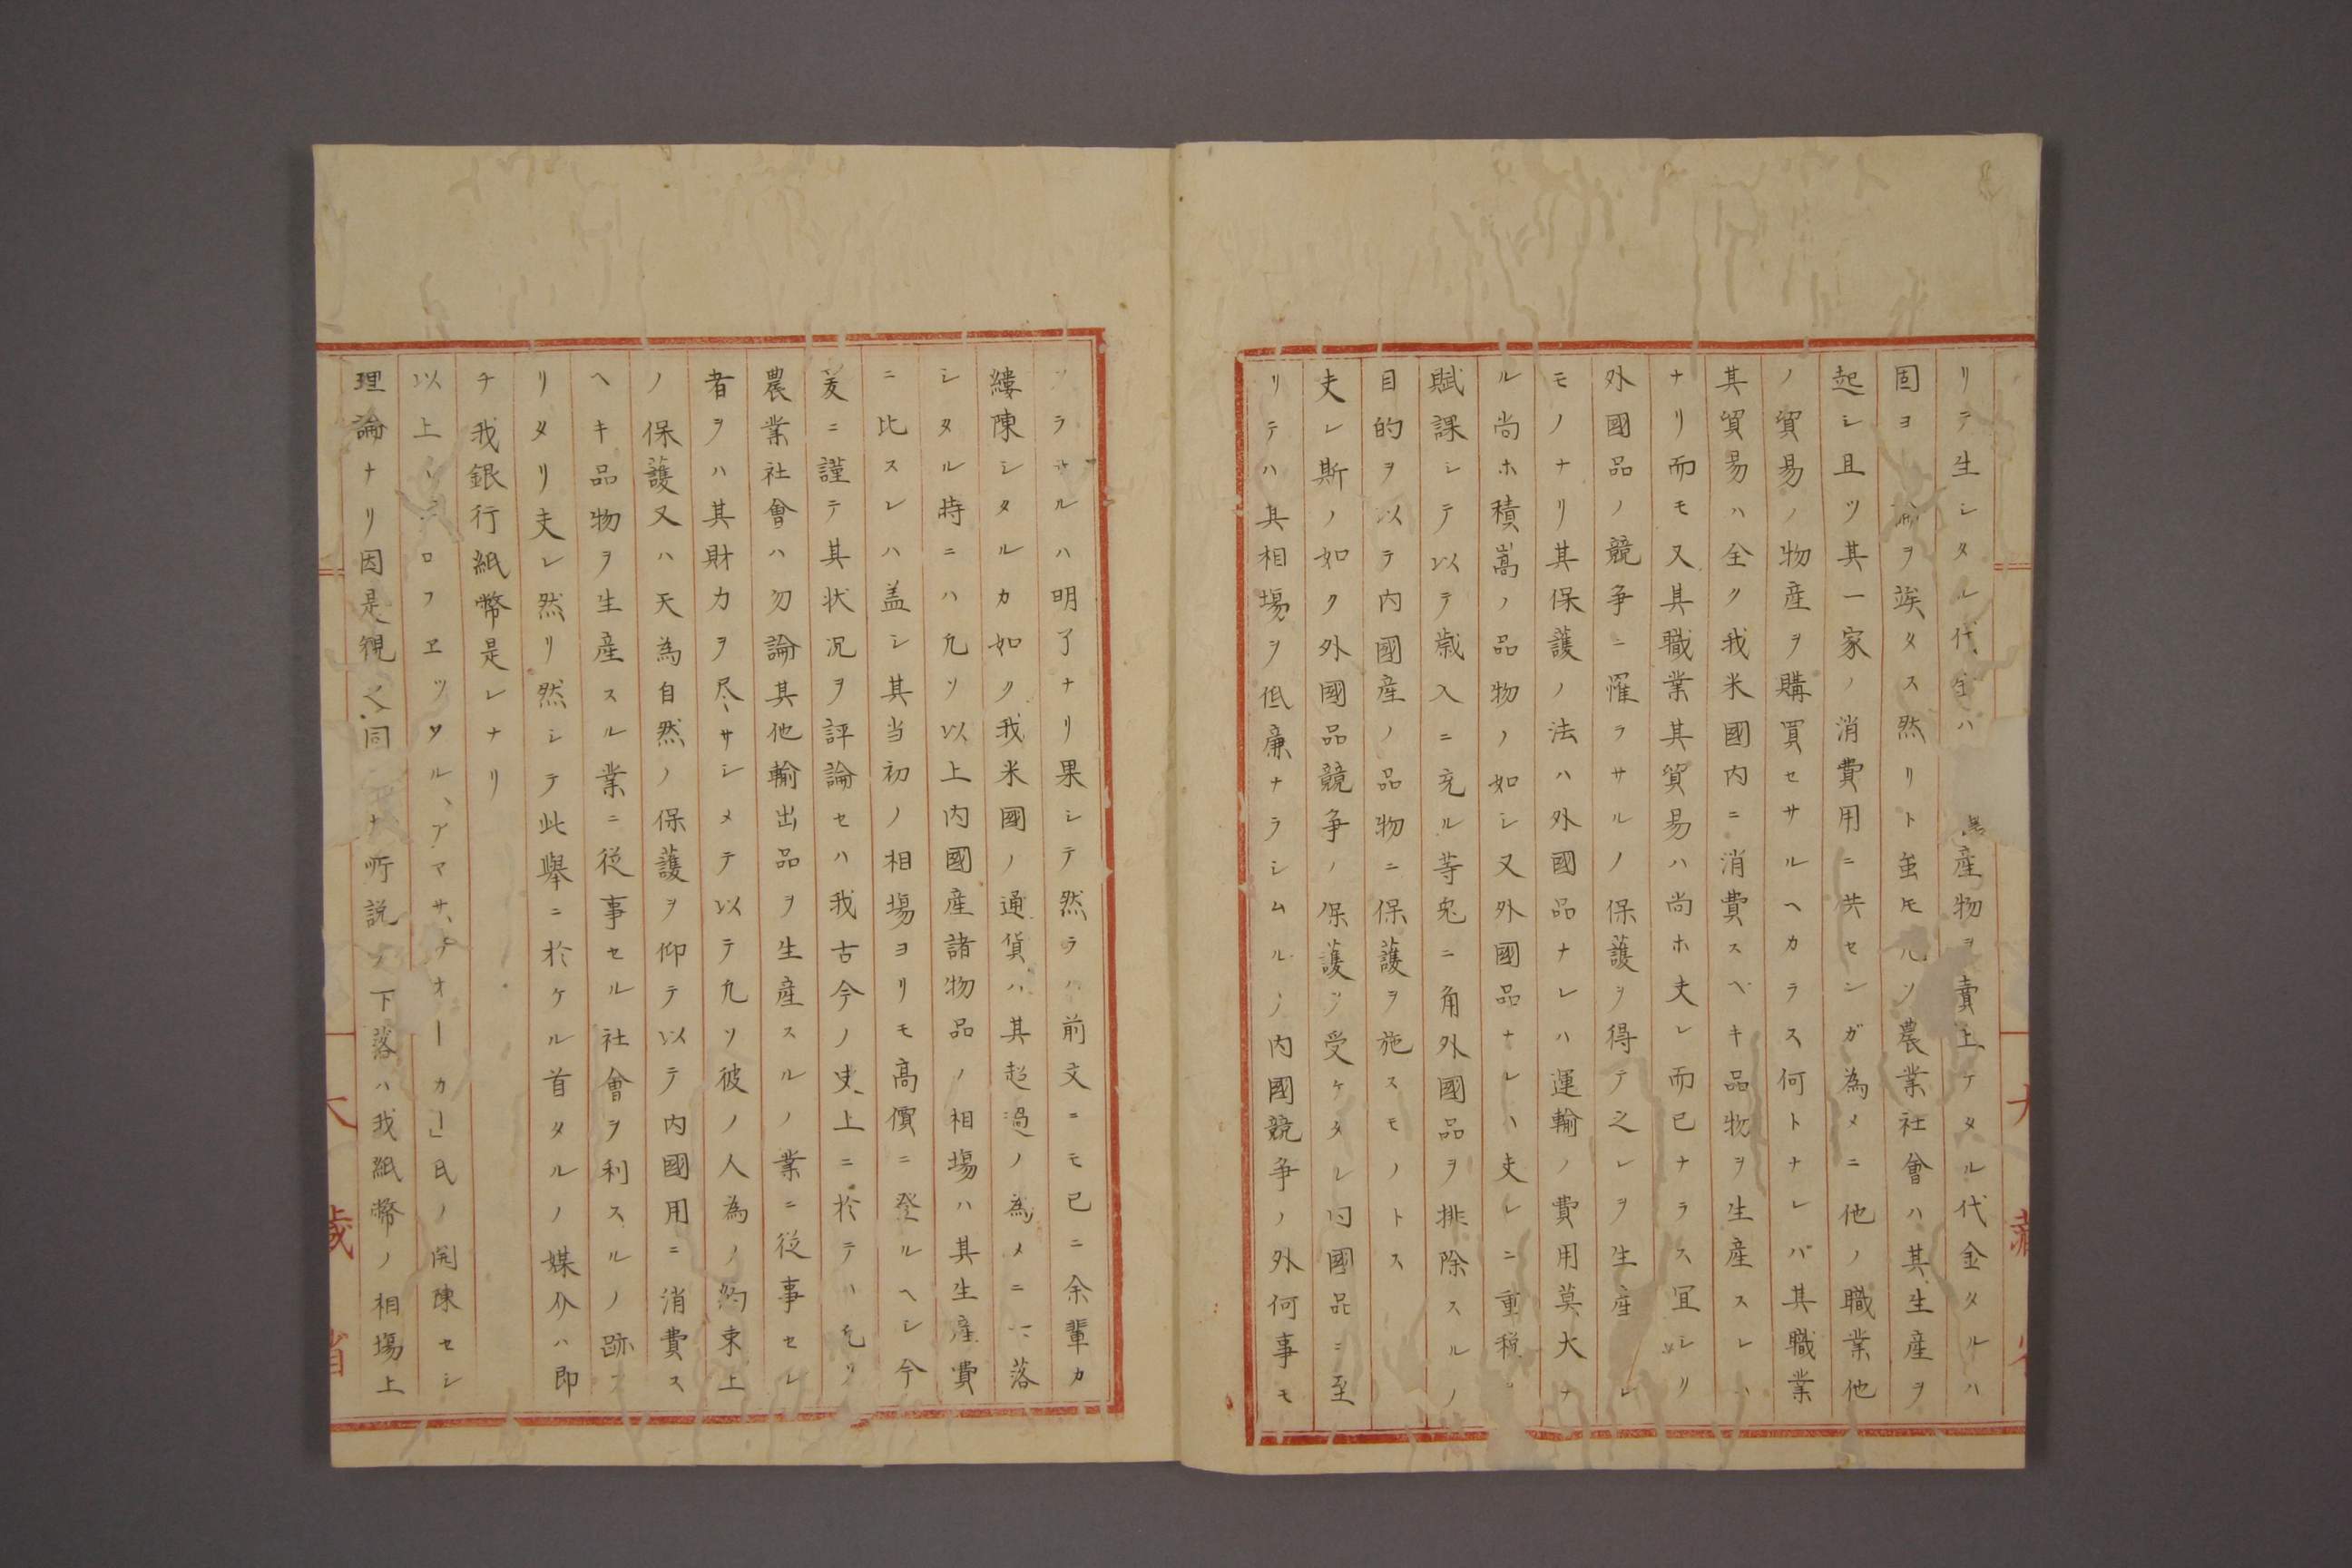 リテ生シタル代金ハ 産物ヲ賣上ケタル代金タルハ
固ヨ 論ヲ竢タス然リト虽モ凡ソ農業社會ハ其生産ヲ
起シ且ツ其一家ノ消費用ニ共センガ為メニ他ノ職業他
ノ貿易ノ物産ヲ購買セサルヘカラス何トナレバ其職業
其貿易ハ全ク我米國内ニ消費スベキ品物ヲ生産スレハ
ナリ而モ又其職業其貿易ハ尚ホ夫レ而已ナラス冝シリ
外國品ノ競争ニ罹ラサルノ保護ヲ得テ之レヲ生産レ
モノナリ其保護ノ法ハ外國品ナレハ運輸ノ費用莫大ナ
ル尚ホ積嵩ノ品物ノ如シ又外國品ナレハ夫レニ重税
賦課シテ以テ歳入ニ充ル等兎ニ角外國品ヲ排除スルノ
目的ヲ以テ内國産ノ品物ニ保護ヲ施スモノトス
夫レ斯ノ如ク外國品競争ノ保護ヲ受ケタレ内國品ニ至
リテハ其相場ヲ低廉ナラシムルノ内國競争ノ外何事モ
ラサルハ明了ナリ果シテ然ラハ前文ニモ已ニ余輩カ
縷陳シタルカ如ク我米國ノ通貨ハ其超過ノ為メニ下落
シタル時ニハ凡ソ以上内國産諸物品ノ相場ハ其生産費
ニ比スレハ盖シ其当初ノ相場ヨリモ高價ニ登ルヘシ今
爰ニ謹テ其状况ヲ評論セハ我古今ノ史上ニ於テハ凡ソ
農業社會ハ勿論其他輸出品ヲ生産スルノ業ニ従事セレ
者ヲハ其財力ヲ尽サシメテ以テ凡ソ彼ノ人為ノ約束上
ノ保護又ハ天為自然ノ保護ヲ仰テ以テ内國用ニ消費ス
ヘキ品物ヲ生産スル業ニ従事セル社會ヲ利スルノ跡ア
リタリ夫レ然リ然シテ此舉ニ於ケル首タルノ媒介ハ即
チ我銀行紙幣是レナリ
以上ハ ロフヱッサル、アマサ、 オーカー」氏ノ開陳セシ
理論ナリ因是視 同 ナ所説ノ下落ハ我紙幣ノ相場上
大藏省
大藏省